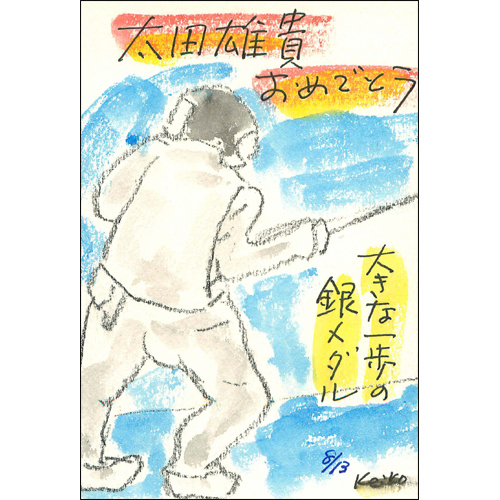 太田雄貴
おめでとう
大きな一歩の
銀メダル
8/13
Keiko